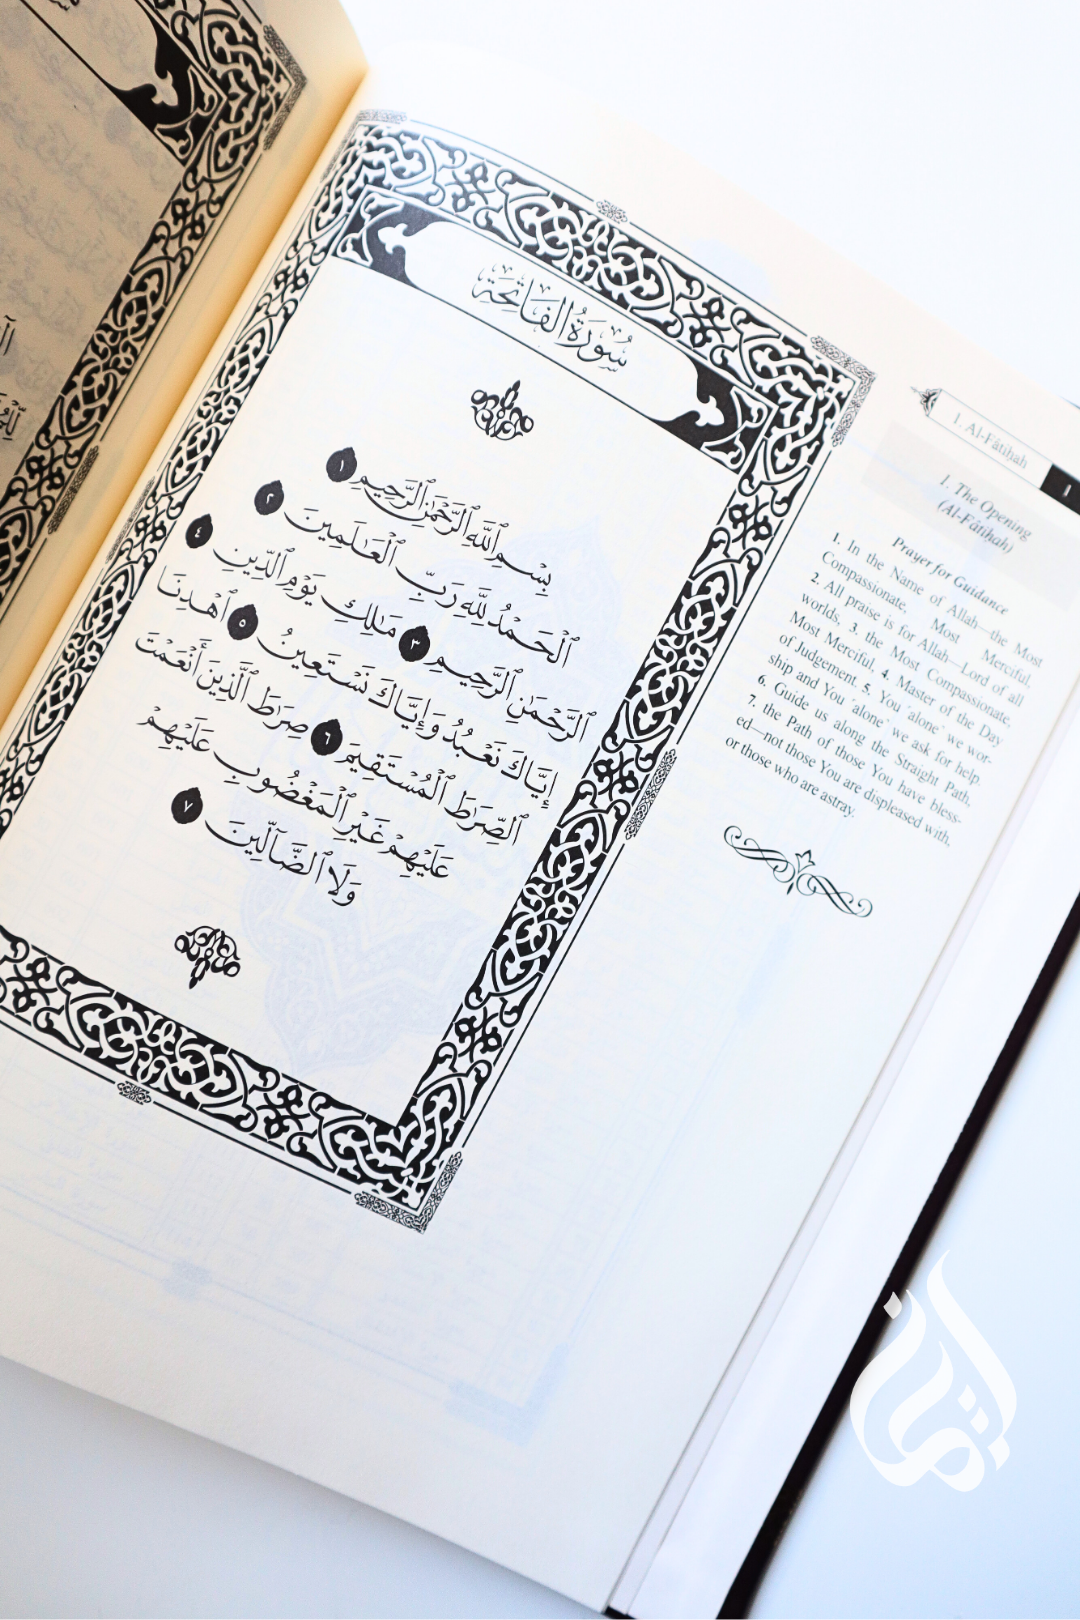 سُورَةُ الفَاتِحَةِ
بِسْمِ ٱللَّهِ ٱلرَّحْمَٰنِ ٱلرَّحِيمِ ١
ٱلْحَمْدُ لِلَّهِ رَبِّ ٱلْعَٰلَمِينَ ٢
ٱلرَّحْمَٰنِ ٱلرَّحِيمِ ٣ مَٰلِكِ يَوْمِ ٱلدِّينِ ٤
إِيَّاكَ نَعْبُدُ وَإِيَّاكَ نَسْتَعِينُ ٥ ٱهْدِنَا
ٱلصِّرَٰطَ ٱلْمُسْتَقِيمَ ٦ صِرَٰطَ ٱلَّذِينَ أَنْعَمْتَ
عَلَيْهِمْ غَيْرِ ٱلْمَغْضُوبِ عَلَيْهِمْ
وَلَا ٱلضَّآلِّينَ ٧
1. Al-Fâtiḥah
١
1. The Opening
(Al-Fâtiḥah)
Prayer for Guidance
1. In the Name of Allah—the Most
Compassionate, Most Merciful.
2. All praise is for Allah—Lord of all
worlds, 3. the Most Compassionate,
Most Merciful, 4. Master of the Day
of Judgement. 5. You ˹alone˺ we wor-
ship and You ˹alone˺ we ask for help.
6. Guide us along the Straight Path,
7. the Path of those You have bless-
ed—not those You are displeased with,
or those who are astray.